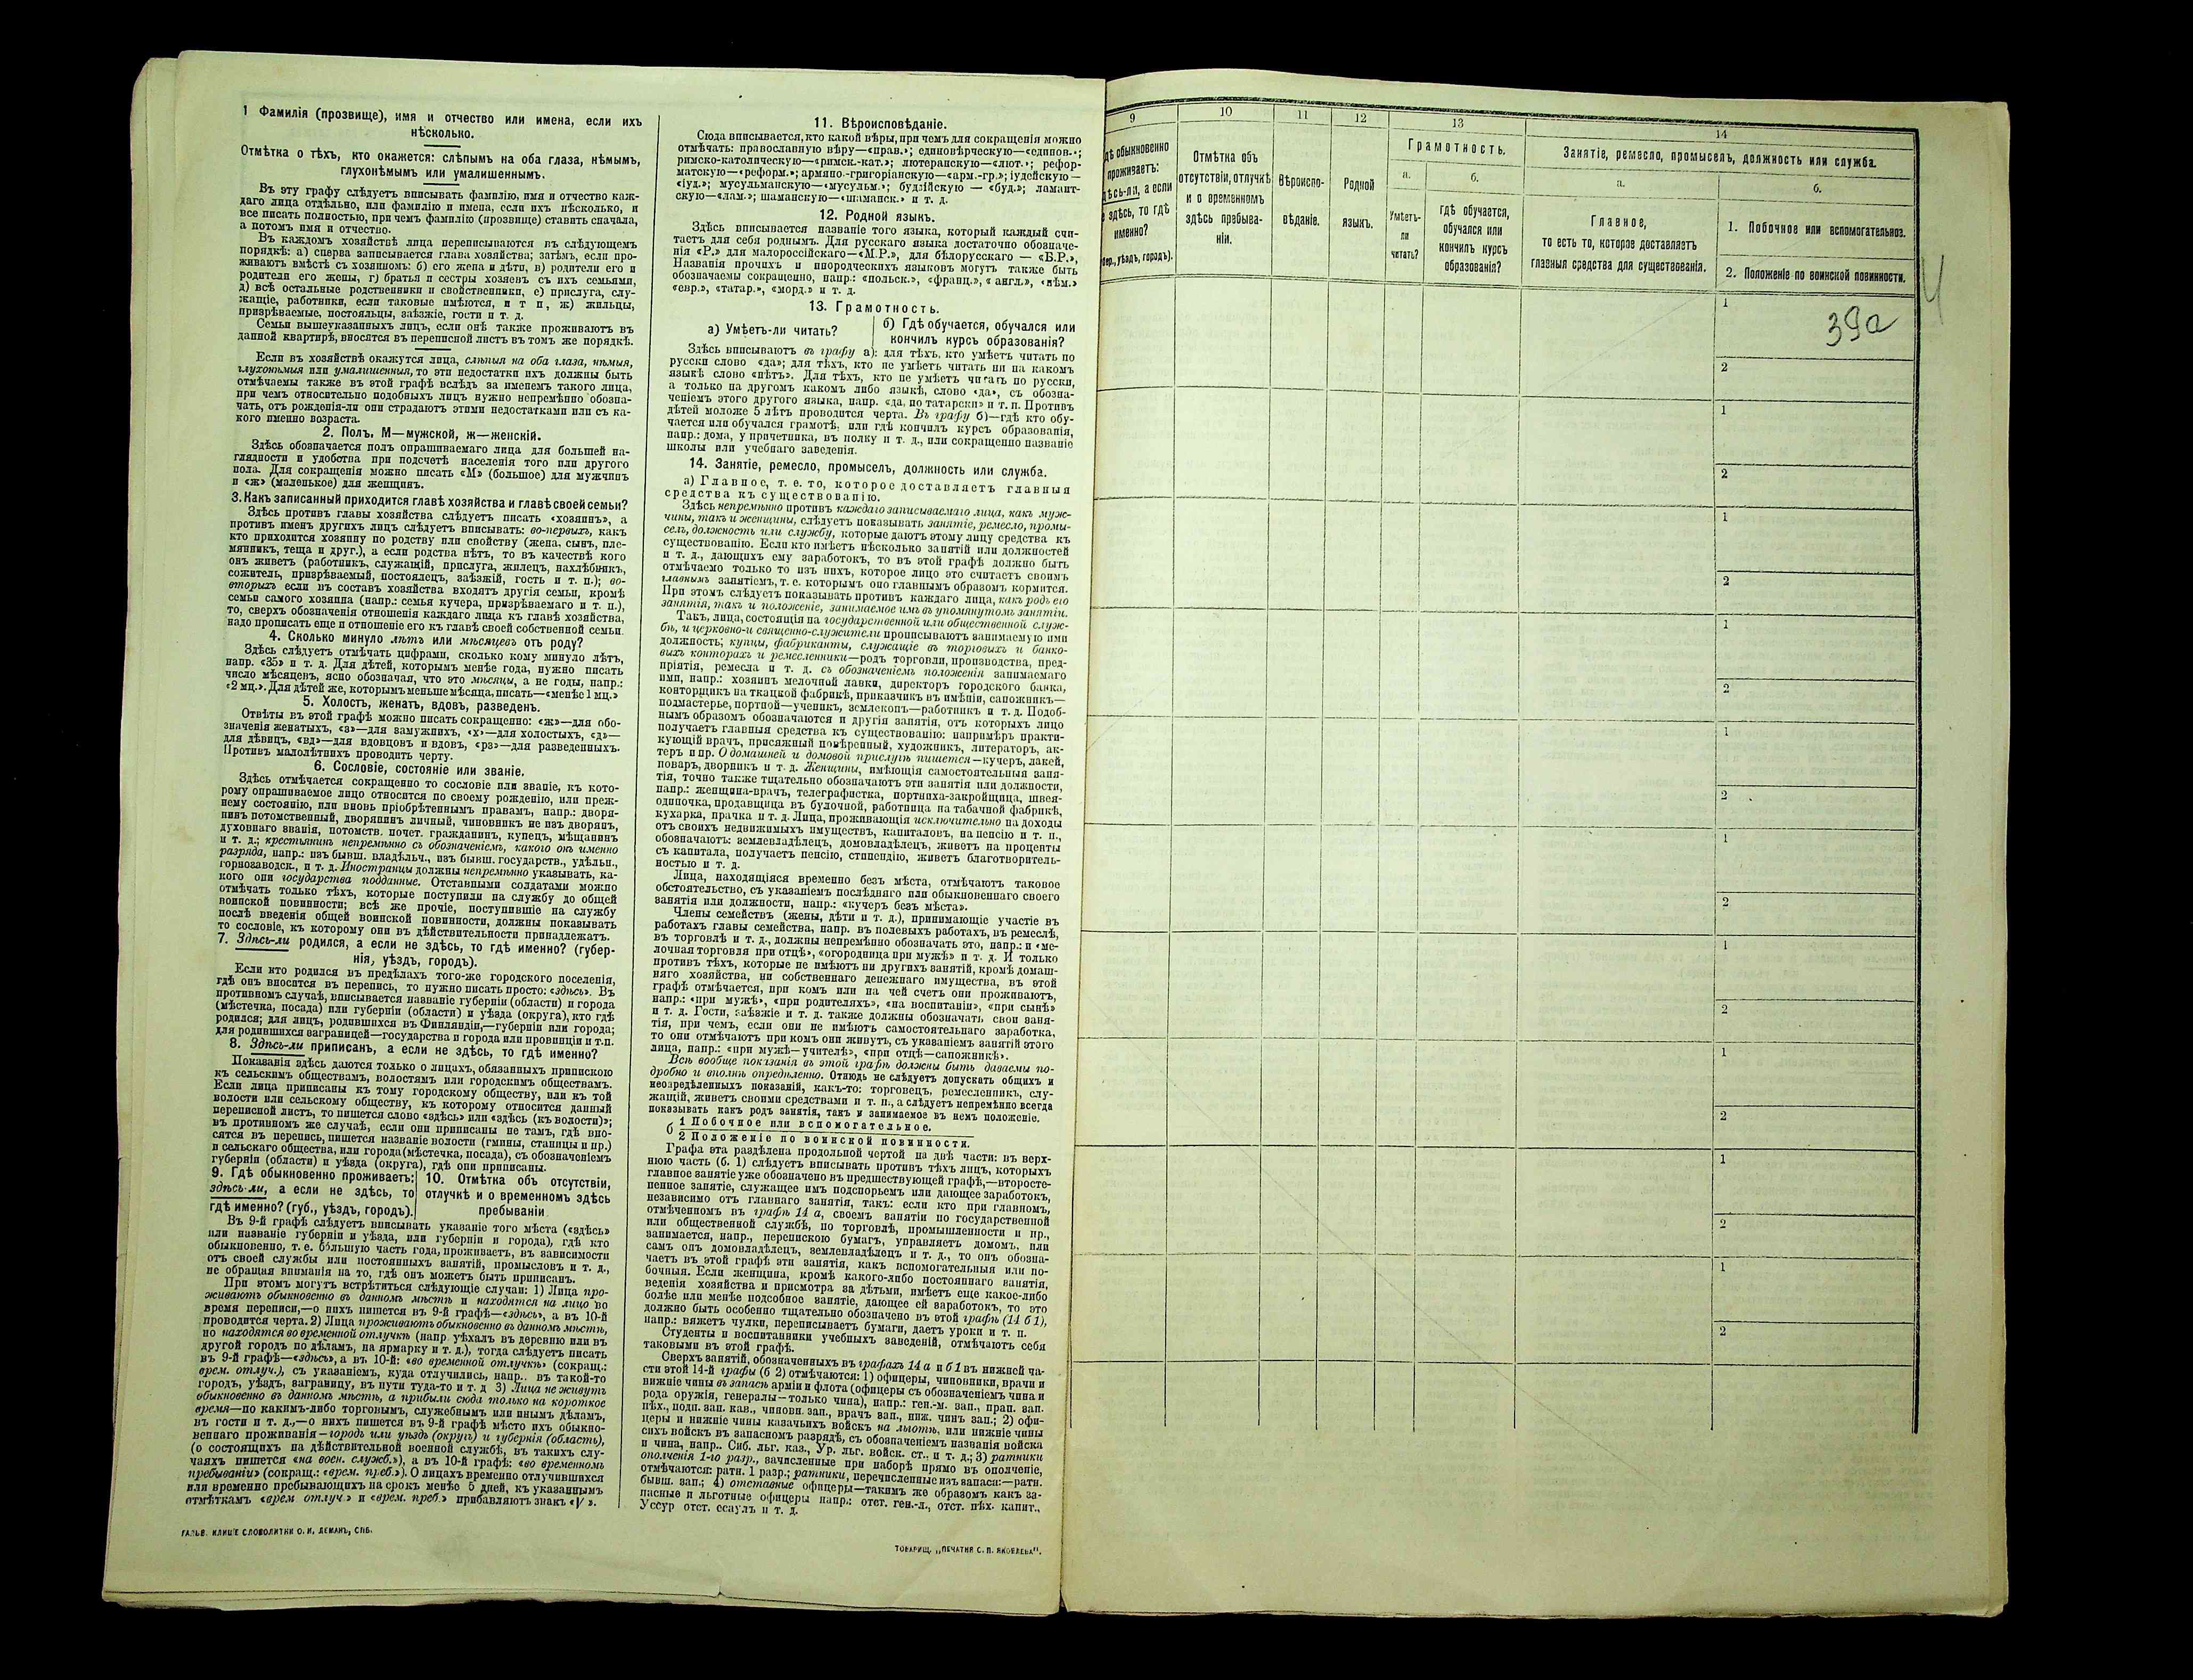 1 Фамилія (прозвище), имя и отчество или имена, если ихъ
нѣсколько.
Отмѣтка о тѣхъ, кто окажется: слѣпымъ на оба глаза, нѣмымъ,
глухонѣмымъ или умалишеннымъ.
Въ эту графу слѣдуетъ вписывать фамилію, имя и отчество каж-
даго лица отдѣльно, или фамилію и имена, если ихъ нѣсколько, и
все писать полностью, при чемъ фамилію (прозвище) ставить сначала,
а потомъ имя и отчество.
Въ каждомъ хозяйствѣ лица переписываются въ слѣдующемъ
порядкѣ: а) сперва записывается глава хозяйства; затѣмъ, если про-
живаютъ вмѣстѣ съ хозяиномъ: б) его жена и дѣти, в) родители его и
родители его жены, г) братья и сестры хозяевъ съ ихъ семьями,
д) всѣ остальные родственники и свойственники, е) прислуга, слу-
жащіе, работники, если таковые имѣются, и т п, ж) жильцы,
призрѣваемые, постояльцы, заѣзжіе, гости и т. д.
Семьи вышеуказанныхъ лицъ, если онѣ также проживаютъ въ
данной квартирѣ, вносятся въ переписной листъ въ томъ же порядкѣ.
Если въ хозяйствѣ окажутся лица, слѣпыя на оба глаза, нѣмыя,
глухонѣмыя или умалишенныя, то эти недостатки ихъ должны быть
отмѣчаемы также въ этой графѣ вслѣдъ за именемъ такого лица,
при чемъ относительно подобныхъ лицъ нужно непремѣнно обозна-
чать, отъ рожденія-ли они страдаютъ этими недостатками или съ ка-
кого именно возраста.
2. Полъ. М—мужской, ж—женскій.
Здѣсь обозначается полъ опрашиваемаго лица для большей на-
глядности и удобства при подсчетѣ населенія того или другого
пола. Для сокращенія можно писать «М» (большое) для мужчинъ
и «ж» (маленькое) для женщинъ.
3. Какъ записанный приходится главѣ хозяйства и главѣ своей семьи?
Здѣсь противъ главы хозяйства слѣдуетъ писать «хозяинъ», а
противъ именъ другихъ лицъ слѣдуетъ вписывать: во-первыхъ, какъ
кто приходится хозяину по родству или свойству (жена, сынъ, пле-
мянникъ, теща и друг.), а если родства нѣтъ, то въ качествѣ кого
онъ живетъ (работникъ, служащій, прислуга, жилецъ, нахлѣбникъ,
сожитель, призрѣваемый, постоялецъ, заѣзжій, гость и т. п.); во-
вторыхъ если въ составъ хозяйства входятъ другія семьи, кромѣ
семьи самого хозяина (напр.: семья кучера, призрѣваемаго и т. п.),
то, сверхъ обозначенія отношенія каждаго лица къ главѣ хозяйства,
надо прописать еще и отношеніе его къ главѣ своей собственной семьи.
4. Сколько минуло лѣтъ или мѣсяцевъ отъ роду?
Здѣсь слѣдуетъ отмѣчать цифрами, сколько кому минуло лѣтъ,
напр. «35» и т. д. Для дѣтей, которымъ менѣе года, нужно писать
число мѣсяцевъ, ясно обозначая, что это мѣсяцы, а не годы, напр.:
«2 мц.». Для дѣтей же, которымъ меньше мѣсяца, писать—«менѣе 1 мц.»
5. Холостъ, женатъ, вдовъ, разведенъ.
Отвѣты въ этой графѣ можно писать сокращенно: «ж»—для обо-
значенія женатыхъ, «з»—для замужнихъ, «х»—для холостыхъ, «д»—
для дѣвицъ, «вд»—для вдовцовъ и вдовъ, «рз»—для разведенныхъ.
Противъ малолѣтнихъ проводить черту.
6. Сословіе, состояніе или званіе.
Здѣсь отмѣчается сокращенно то сословіе или званіе, къ кото-
рому опрашиваемое лицо относится по своему рожденію, или преж-
нему состоянію, или вновь пріобрѣтеннымъ правамъ, напр.: дворя-
нинъ потомственный, дворянинъ личный, чиновникъ не изъ дворянъ,
духовнаго званія, потомств. почет. гражданинъ, купецъ, мѣщанинъ
и т. д.; крестьянинъ непремѣнно съ обозначеніемъ, какого онъ именно
разряда, напр.: изъ бывш. владѣльч., изъ бывш. государств., удѣльн.,
горнозаводск., и т. д. Иностранцы должны непремѣнно указывать, ка-
кого они государства подданные. Отставными солдатами можно
отмѣчать только тѣхъ, которые поступили на службу до общей
воинской повинности; всѣ же прочіе, поступившіе на службу
послѣ введенія общей воинской повинности, должны показывать
то сословіе, къ которому они въ дѣйствительности принадлежатъ.
7. Здѣсь-ли родился, а если не здѣсь, то гдѣ именно? (губер-
нія, уѣздъ, городъ).
Если кто родился въ предѣлахъ того-же городского поселенія,
гдѣ онъ вносится въ перепись, то нужно писать просто: «здѣсь». Въ
противномъ случаѣ, вписывается названіе губерніи (области) и города
(мѣстечка, посада) или губерніи (области) и уѣзда (округа), кто гдѣ
родился; для лицъ, родившихся въ Финляндіи,—губерніи или города;
для родившихся заграницей—государства и города или провинціи и т.п.
8. Здѣсь-ли приписанъ, а если не здѣсь, то гдѣ именно?
Показанія здѣсь даются только о лицахъ, обязанныхъ припискою
къ сельскимъ обществамъ, волостямъ или городскимъ обществамъ.
Если лица приписаны къ тому городскому обществу, или къ той
волости или сельскому обществу, къ которому относится данный
переписной листъ, то пишется слово «здѣсь» или «здѣсь (къ волости)»;
въ противномъ же случаѣ, если они приписаны не тамъ, гдѣ вно-
сятся въ перепись, пишется названіе волости (гмины, станицы и пр.)
и сельскаго общества, или города (мѣстечка, посада), съ обозначеніемъ
губерніи (области) и уѣзда (округа), гдѣ они приписаны.
9. Гдѣ обыкновенно проживаетъ:
здѣсь-ли, а если не здѣсь, то
гдѣ именно? (губ., уѣздъ, городъ).
10. Отмѣтка объ отсутствіи,
отлучкѣ и о временномъ здѣсь
пребываніи
Въ 9-й графѣ слѣдуетъ вписывать указаніе того мѣста («здѣсь»
или названіе губерніи и уѣзда, или губерніи и города), гдѣ кто
обыкновенно, т. е. бо́льшую часть года, проживаетъ, въ зависимости
отъ своей службы или постоянныхъ занятій, промысловъ и т. д.,
не обращая вниманія на то, гдѣ онъ можетъ быть приписанъ.
При этомъ могутъ встрѣтиться слѣдующіе случаи: 1) Лица про-
живаютъ обыкновенно въ данномъ мѣстѣ и находятся на лицо во
время переписи,—о нихъ пишется въ 9-й графѣ—«здѣсь», а въ 10-й
проводится черта. 2) Лица проживаютъ обыкновенно въ данномъ мѣстѣ,
но находятся во временной отлучкѣ (напр уѣхалъ въ деревню или въ
другой городъ по дѣламъ, на ярмарку и т. д.), тогда слѣдуетъ писать
въ 9-й графѣ—«здѣсь», а въ 10-й: «во временной отлучкѣ» (сокращ.:
врем. отлуч.), съ указаніемъ, куда отлучились, напр.. въ такой-то
городъ, уѣздъ, заграницу, въ пути туда-то и т. д 3) Лица не живутъ
обыкновенно въ данномъ мѣстѣ, а прибыли сюда только на короткое
время—по какимъ-либо торговымъ, служебнымъ или инымъ дѣламъ,
въ гости и т. д.,—о нихъ пишется въ 9-й графѣ мѣсто ихъ обыкно-
веннаго проживанія—городъ или уѣздъ (округъ) и губернія (область),
(о состоящихъ на дѣйствительной военной службѣ, въ такихъ слу-
чаяхъ пишется «на воен. служб.»), а въ 10-й графѣ: «во временномъ
пребываніи» (сокращ.: «врем. преб.»). О лицахъ временно отлучившихся
или временно пребывающихъ на срокъ менѣе 5 дней, къ указаннымъ
отмѣткамъ «врем отлуч.» и «врем. преб.» прибавляютъ знакъ «V».
ГАЛЬВ. КЛИШЕ СЛОВОЛИТНИ О. И. ЛЕМАНЪ, СПБ.
11. Вѣроисповѣданіе.
Сюда вписывается, кто какой вѣры, при чемъ для сокращенія можно
отмѣчать: православную вѣру—«прав.»; единовѣрческую—«единов.»;
римско-католическую—«римск.-кат.»; лютеранскую—«лют.»; рефор-
матскую—«реформ.»; армяно.-григоріанскую—«арм.-гр.»; іудейскую—
«іуд.»; мусульманскую—«мусульм.»; буддійскую — «буд.»; ламаит-
скую—«лам.»; шаманскую—«шаманск.» и т. д.
12. Родной языкъ.
Здѣсь вписывается названіе того языка, который каждый счи-
таетъ для себя роднымъ. Для русскаго языка достаточно обозначе-
нія «Р.» для малороссійскаго—«М.Р.», для бѣлорусскаго — «Б.Р.»,
Названія прочихъ и инородческихъ языковъ могутъ также быть
обозначаемы сокращенно, напр.: «польск.», «франц.», « англ.», «нѣм.»
«евр.», «татар.», «морд.» и т. д.
13. Грамотность.
а) Умѣетъ-ли читать?
б) Гдѣ обучается, обучался или
кончилъ курсъ образованія?
Здѣсь вписываютъ въ графу а): для тѣхъ, кто умѣетъ читать по
русски слово «да»; для тѣхъ, кто не умѣетъ читать ни на какомъ
языкѣ слово «нѣтъ». Для тѣхъ, кто не умѣетъ читать по русски,
а только на другомъ какомъ либо языкѣ, слово «да», съ обозна-
ченіемъ этого другого языка, напр. «да, по татарски» и т. п. Противъ
дѣтей моложе 5 лѣтъ проводится черта. Въ графу б)—гдѣ кто обу-
чается или обучался грамотѣ, или гдѣ кончилъ курсъ образованія,
напр.: дома, у причетника, въ полку и т. д., или сокращенно названіе
школы или учебнаго заведенія.
14. Занятіе, ремесло, промыселъ, должность или служба.
а) Главное, т. е. то, которое доставляетъ главныя
средства къ существованію.
Здѣсь непремѣнно противъ каждаго записываемаго лица, какъ муж-
чины, такъ и женщины, слѣдуетъ показывать занятіе, ремесло, промы-
селъ, должность или службу, которые даютъ этому лицу средства къ
существованію. Если кто имѣетъ нѣсколько занятій или должностей
и т. д., дающихъ ему заработокъ, то въ этой графѣ должно быть
отмѣчаемо только то изъ нихъ, которое лицо это считаетъ своимъ
главнымъ занятіемъ, т. е. которымъ оно главнымъ образомъ кормится.
При этомъ слѣдуетъ показывать противъ каждаго лица, какъ родъ его
занятія, такъ и положеніе, занимаемое имъ въ упомянутомъ занятіи.
Такъ, лица, состоящія на государственной или общественной служ-
бѣ, и церковно-и священно-служители прописываютъ занимаемую ими
должность; купцы, фабриканты, служащіе въ торговыхъ и банко-
выхъ конторахъ и ремесленники—родъ торговли, производства, пред-
пріятія, ремесла и т. д. съ обозначеніемъ положенія занимаемаго
ими, напр.: хозяинъ мелочной лавки, директоръ городского банка,
конторщикъ на ткацкой фабрикѣ, приказчикъ въ имѣніи, сапожникъ—
подмастерье, портной—ученикъ, землекопъ—работникъ и т. д. Подоб-
нымъ образомъ обозначаются и другія занятія, отъ которыхъ лицо
получаетъ главныя средства къ существованію: напримѣръ практи-
кующій врачъ, присяжный повѣренный, художникъ, литераторъ, ак-
теръ и пр. О домашней и домовой прислугѣ пишется—кучеръ, лакей,
поваръ, дворникъ и т. д. Женщины, имѣющія самостоятельныя заня-
тія, точно также тщательно обозначаютъ эти занятія или должности,
напр.: женщина-врачъ, телеграфистка, портниха-закройщица, швея-
одиночка, продавщица въ булочной, работница на табачной фабрикѣ,
кухарка, прачка и т. д. Лица, проживающія исключительно на доходы
отъ своихъ недвижимыхъ имуществъ, капиталовъ, на пенсію и т. п.,
обозначаютъ: землевладѣлецъ, домовладѣлецъ, живетъ на проценты
съ капитала, получаетъ пенсію, стипендію, живетъ благотворитель-
ностью и т. д.
Лица, находящіяся временно безъ мѣста, отмѣчаютъ таковое
обстоятельство, съ указаніемъ послѣдняго или обыкновеннаго своего
занятія или должности, напр.: «кучеръ безъ мѣста».
Члены семействъ (жены, дѣти и т. д.), принимающіе участіе въ
работахъ главы семейства, напр. въ полевыхъ работахъ, въ ремеслѣ,
въ торговлѣ и т. д., должны непремѣнно обозначать это, напр.: и «ме-
лочная торговля при отцѣ», «огородница при мужѣ» и т. д. И только
противъ тѣхъ, которые не имѣютъ ни другихъ занятій, кромѣ домаш-
няго хозяйства, ни собственнаго денежнаго имущества, въ этой
графѣ отмѣчается, при комъ или на чей счетъ они проживаютъ,
напр.: «при мужѣ», «при родителяхъ», «на воспитаніи», «при сынѣ»
и т. д. Гости, заѣзжіе и т. д. также должны обозначать свои заня-
тія, при чемъ, если они не имѣютъ самостоятельнаго заработка,
то они отмѣчаютъ при комъ они живутъ, съ указаніемъ занятій этого
лица, напр.: «при мужѣ—учителѣ», «при отцѣ—сапожникѣ».
Всѣ вообще показанія въ этой графѣ должны быть даваемы по-
дробно и вполнѣ опредѣленно. Отнюдь не слѣдуетъ допускать общихъ и
неопредѣленныхъ показаній, какъ-то: торговецъ, ремесленникъ, слу-
жащій, живетъ своими средствами и т. п., а слѣдуетъ непремѣнно всегда
показывать какъ родъ занятія, такъ и занимаемое въ немъ положеніе.
б 1 Побочное или вспомогательное.
2 Положеніе по воинской повинности.
Графа эта раздѣлена продольной чертой на двѣ части: въ верх-
нюю часть (б. 1) слѣдуетъ вписывать противъ тѣхъ лицъ, которыхъ
главное занятіе уже обозначено въ предшествующей графѣ,—второсте-
пенное занятіе, служащее имъ подспорьемъ или дающее заработокъ,
независимо отъ главнаго занятія, такъ: если кто при главномъ,
отмѣченномъ въ графѣ 14 а, своемъ занятіи по государственной
или общественной службѣ, по торговлѣ, промышленности и пр.,
занимается, напр., перепискою бумагъ, управляетъ домомъ, или
самъ онъ домовладѣлецъ, землевладѣлецъ и т. д., то онъ обозна-
чаетъ въ этой графѣ эти занятія, какъ вспомогательныя или по-
бочныя. Если женщина, кромѣ какого-либо постояннаго занятія,
веденія хозяйства и присмотра за дѣтьми, имѣетъ еще какое-либо
болѣе или менѣе подсобное занятіе, дающее ей заработокъ, то это
должно быть особенно тщательно обозначено въ этой графѣ (14 б 1),
напр.: вяжетъ чулки, переписываетъ бумаги, даетъ уроки и т. п.
Студенты и воспитанники учебныхъ заведеній, отмѣчаютъ себя
таковыми въ этой графѣ.
Сверхъ занятій, обозначенныхъ въ графахъ 14 а и б 1 въ нижней ча-
сти этой 14-й графы (б 2) отмѣчаются: 1) офицеры, чиновники, врачи и
нижніе чины въ запасѣ арміи и флота (офицеры съ обозначеніемъ чина и
рода оружія, генералы—только чина), напр.: ген.-м. зап., прап. зап.
пѣх., подп. зап. кав., чиновн. зап., врачъ зап., ниж. чинъ зап.; 2) офи-
церы и нижніе чины казачьихъ войскъ на льготѣ, или нижніе чины
сихъ войскъ въ запасномъ разрядѣ, съ обозначеніемъ названія войска
и чина, напр.. Сиб. льг. каз., Ур. льг. войск. ст., и т. д.; 3) ратники
ополченія 1-го разр., зачисленные при наборѣ прямо въ ополченіе,
отмѣчаются: ратн. 1 разр.; ратники, перечисленные изъ запаса:—ратн.
бывш. зап.; 4) отставные офицеры—такимъ же образомъ какъ за-
пасные и льготные офицеры напр.: отст. ген.-л., отст. пѣх. капит.,
Уссур отст. есаулъ и т. д.
ТОВАРИЩ. „ПЕЧАТНЯ С. П. ЯКОВЛЕВА".
9 10 11 12 13 14
гдѣ обыкновенно
проживаетъ:
здѣсь-ли, а если
здѣсь, то гдѣ
именно?
уѣздъ, городъ).
Отмѣтка объ
отсутствіи, отлучкѣ
и о временномъ
здѣсь пребыва-
ніи.
Вѣроиспо-
вѣданіе.
Родной
языкъ.
Грамотность.
а.
Умѣетъ-
ли
читать?
б.
гдѣ обучается,
обучался или
кончилъ курсъ
образованія?
Занятіе, ремесло, промыселъ, должность или служба.
а.
Главное,
то есть то, которое доставляетъ
главныя средства для существованія.
б.
1. Побочное или вспомогательное.
2. Положеніе по воинской повинности.
1
39а
2
1
2
1
2
1
2
1
2
1
2
1
2
1
2
1
2
1
2